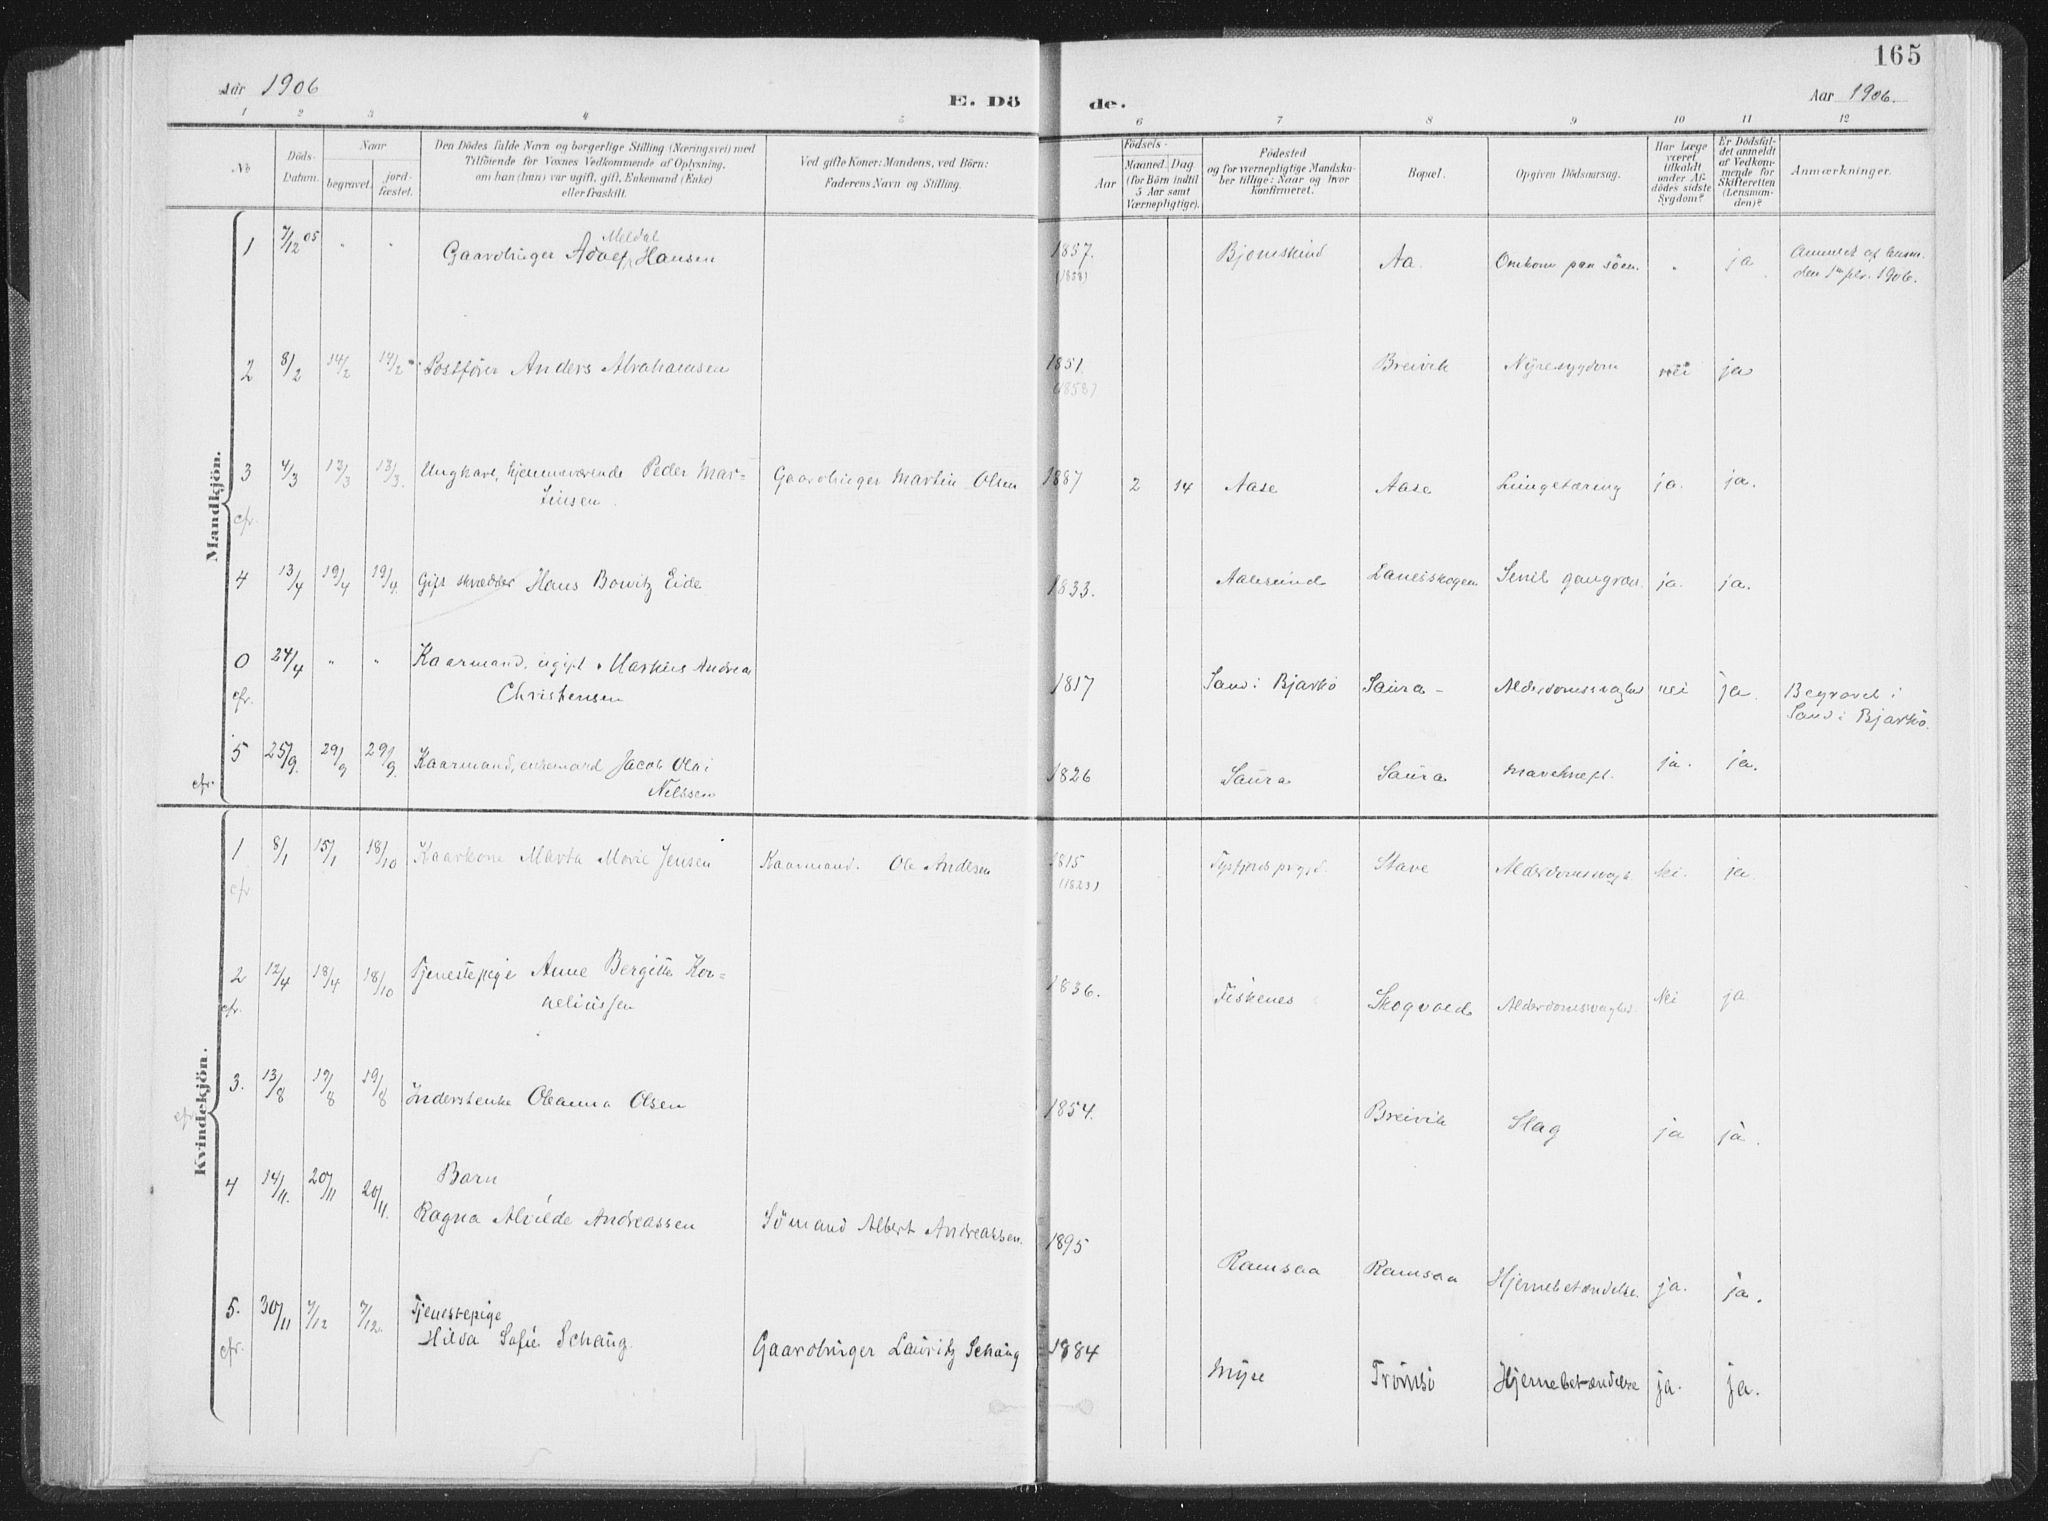 165
Aar 1906
E. Dö de.
Aar 1906.
1 2 3 4 5 6 7 8 9 10 11 12
No
Döds-Datum.
Naar
begravet.
jord-fæstet.
Den Dödes fulde Navn og borgerlige Stilling (Næringsvei) med
Tilföiende for Voxnes Vedkommende af Oplysning,
om han (hun) var ugift, gift, Enkemand (Enke)
eller fraskilt.
Ved gifte Koner: Mandens, ved Börn:
Faderens Navn og Stilling.
Födsels-
Aar
Maaned. Dag
(for Börn indtil
5 Aar samt
Værnepligtige).
Födested
og for værnepligtige Mandska-
ber tillige: Naar og hvor
konfirmeret.
Bopæl.
Opgiven Dödsaarsag.
Har Læge
været
tilkaldt
under Af-
dödes sidste
Sygdom?
Er Dödsfal-
det anmeldt
af Vedkom-
mende for
Skifteretten
(Lensman-
den)?
Anmærkninger.
Mandkjön.
1 7/12 05 " " Gaardbruger Adolf Meldal Hansen 1857. (1858) Bjørnskind Aa Omkom paa söen. " ja Anmeldt af lensm. den 1906.
2 8/2 14/2 14/2 Postfører Anders Abrahamsen 1851. (1853) Breivik Nyresygdom nei ja
3 4/3 13/3 13/3. Ungkarl, hjemmeværende Peder Mar-
tinsen. Gaardbruger Martin Olsen 1887 2 14 Aase Aase Lungetæring ja. ja.
cfr.
4 13/4 19/4 19/4. Gift skrædder Hans Bowitz Eide 1833. Aalesund Lanesskogen Senil gangræn ja. ja.
0 24/4 " " Kaarmand, ugift, Markus Andreas
Christensen 1817 Sand i Bjarkö Saura Alderdomssvaghed nei ja. Begravet i
Sand i Bjarkö.
cfr.
5 25/9. 29/9 29/9. Kaarmand, enkemand Jacob Olai
Nilssen 1826 Saura Saura Mavekræft. ja. ja.
cfr.
Kvindekjön.
1 8/1 15/1 18/10 Kaarkone Marta Marie Jensen Kaarmand. Ole Andersen 1815 (1823) Tysfjords prgjd. Stave Alderdomssvagh. nei. ja.
cfr
2 12/4 18/4 18/10 Tjenestepige Anne Bergitte Kor-
neliussen 1836. Fiskenes Skogvold Alderdomssvaghed. Nei ja
cfr.
3. 13/8 19/8 19/8 Inderstenke Oleanna Olsen 1854. Breivik Slag ja ja.
cfr
4 14/11. 20/11 20/11. Barn
Ragna Alvilde Andreassen Sömand Albert Andreassen. 1895 Ramsaa Ramsaa Hjernebetændelse. ja. ja.
5. 30/11 7/12 7/12. Tjenestepige
Hilda Sofie Schaug. Gaardbruger Lauritz Schaug 1884 Myre Tromsö Hjernebetændelse ja. ja.
cfr.